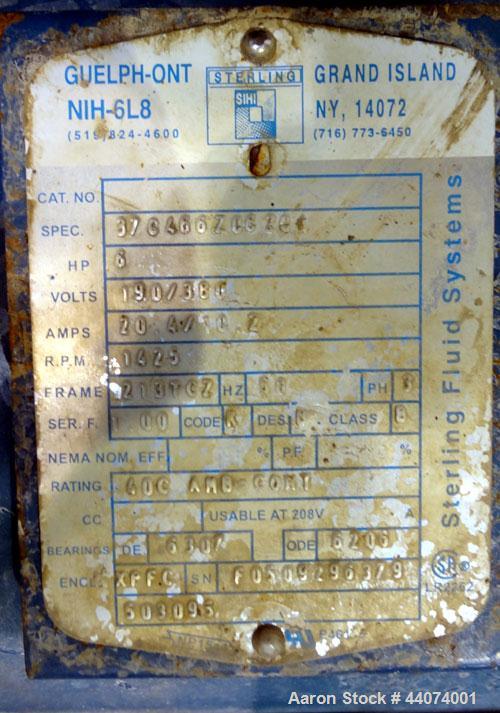 GUELPH-ONT STERLING GRAND ISLAND
NIH-6L8 SIHI NY, 14072
(519)824-4600 (716) 773-6450
CAT. NO.
SPEC.
HP
VOLTS 190/380
AMPS 20.4/10.2
R.P.M. 1425
FRAME 213TCZ HZ PH 3
SER. F. 1.00 CODE K DES. CLASS B
NEMA NOM. EFF. % P.F. %
RATING 40C AMB-CONT
CC USABLE AT 208V A
BEARINGS DE 6307 ODE 6206
ENCL. XPFC SN
503095
Sterling Fluid Systems
Aaron Stock # 44074001